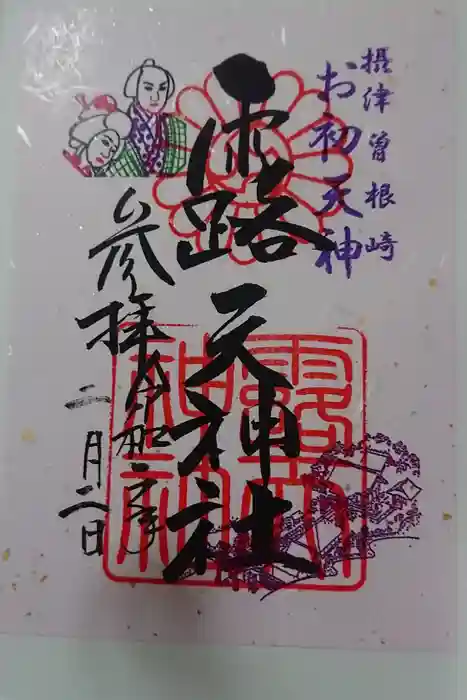 摂津曽根崎
お初天神
露天神社
参拝
令和二年
二月二日
露天神社